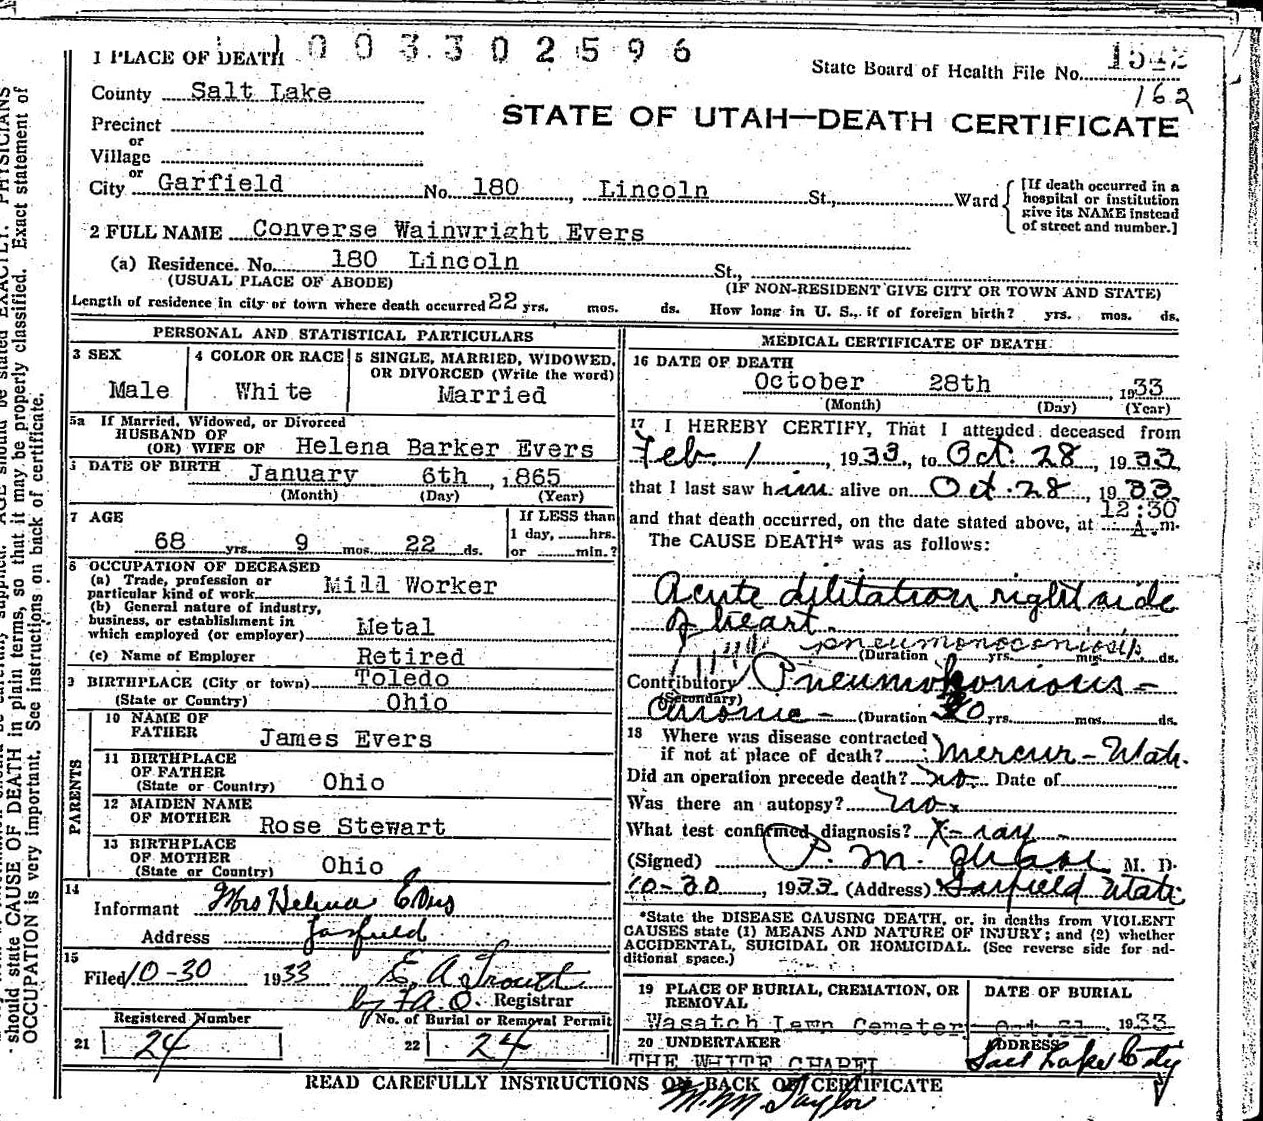 1003302596
1 PLACE OF DEATH
State Board of Health File No. 1542
162
County Salt Lake
STATE OF UTAH—DEATH CERTIFICATE
Precinct
or
Village
or
City Garfield No. 180, Lincoln St., Ward
[If death occurred in a
hospital or institution
give its NAME instead
of street and number.]
2 FULL NAME Converse Wainwright Evers
(a) Residence. No. 180 Lincoln St.,
(USUAL PLACE OF ABODE) (IF NON-RESIDENT GIVE CITY OR TOWN AND STATE)
Length of residence in city or town where death occurred 22 yrs. mos. ds. How long in U. S., if of foreign birth? yrs. mos. ds.
PERSONAL AND STATISTICAL PARTICULARS
3 SEX
Male
4 COLOR OR RACE
White
5 SINGLE, MARRIED, WIDOWED,
OR DIVORCED (Write the word)
Married
5a If Married, Widowed, or Divorced
HUSBAND OF
(OR) WIFE OF Helena Barker Evers
DATE OF BIRTH January 6th, 1865
(Month) (Day) (Year)
7 AGE
68 yrs. 9 mos. 22 ds.
If LESS than
1 day, hrs.
or min.?
8 OCCUPATION OF DECEASED
(a) Trade, profession or
particular kind of work Mill Worker
(b) General nature of industry,
business, or establishment in
which employed (or employer) Metal
(c) Name of Employer Retired
9 BIRTHPLACE (City or town) Toledo
(State or Country) Ohio
PARENTS
10 NAME OF
FATHER James Evers
11 BIRTHPLACE
OF FATHER
(State or Country) Ohio
12 MAIDEN NAME
OF MOTHER Rose Stewart
13 BIRTHPLACE
OF MOTHER
(State or Country) Ohio
14
Informant Mrs Helena Evers
Address Garfield
15
Filed 10-30 1933 E A Trout
by F.A.O. Registrar
Registered Number
21 24
No. of Burial or Removal Permit
22 24
MEDICAL CERTIFICATE OF DEATH
16 DATE OF DEATH
October 28th, 1933
(Month) (Day) (Year)
17 I HEREBY CERTIFY, That I attended deceased from
Feb 1, 1933, to Oct. 28, 1933
that I last saw him alive on Oct. 28, 1933
12:30
and that death occurred, on the date stated above, at A. m.
The CAUSE DEATH* was as follows:
Acute dilitation right side
of heart.
pneumonoconiosis
(Duration yrs. mos. ds.
Contributory Pneumokonious -
(Secondary)
Chronic - (Duration 20 yrs. mos. ds.
18 Where was disease contracted
if not at place of death? Mercur - Utah.
Did an operation precede death? no. Date of
Was there an autopsy? no.
What test confirmed diagnosis? X-ray -
(Signed) P. M. M. D.
10-30, 1933 (Address) Garfield Utah
*State the DISEASE CAUSING DEATH, or, in deaths from VIOLENT
CAUSES state (1) MEANS AND NATURE OF INJURY; and (2) whether
ACCIDENTAL, SUICIDAL OR HOMICIDAL. (See reverse side for ad-
ditional space.)
19 PLACE OF BURIAL, CREMATION, OR
REMOVAL
Wasatch Lawn Cemeter
DATE OF BURIAL
Oct. 31, 1933
20 UNDERTAKER
THE WHITE CHAPEL
ADDRESS
Salt Lake City
READ CAREFULLY INSTRUCTIONS ON BACK OF CERTIFICATE
M. M. Taylor
should state CAUSE OF DEATH in plain terms, so that it may be properly classified. Exact statement of
OCCUPATION is very important. See instructions on back of certificate.